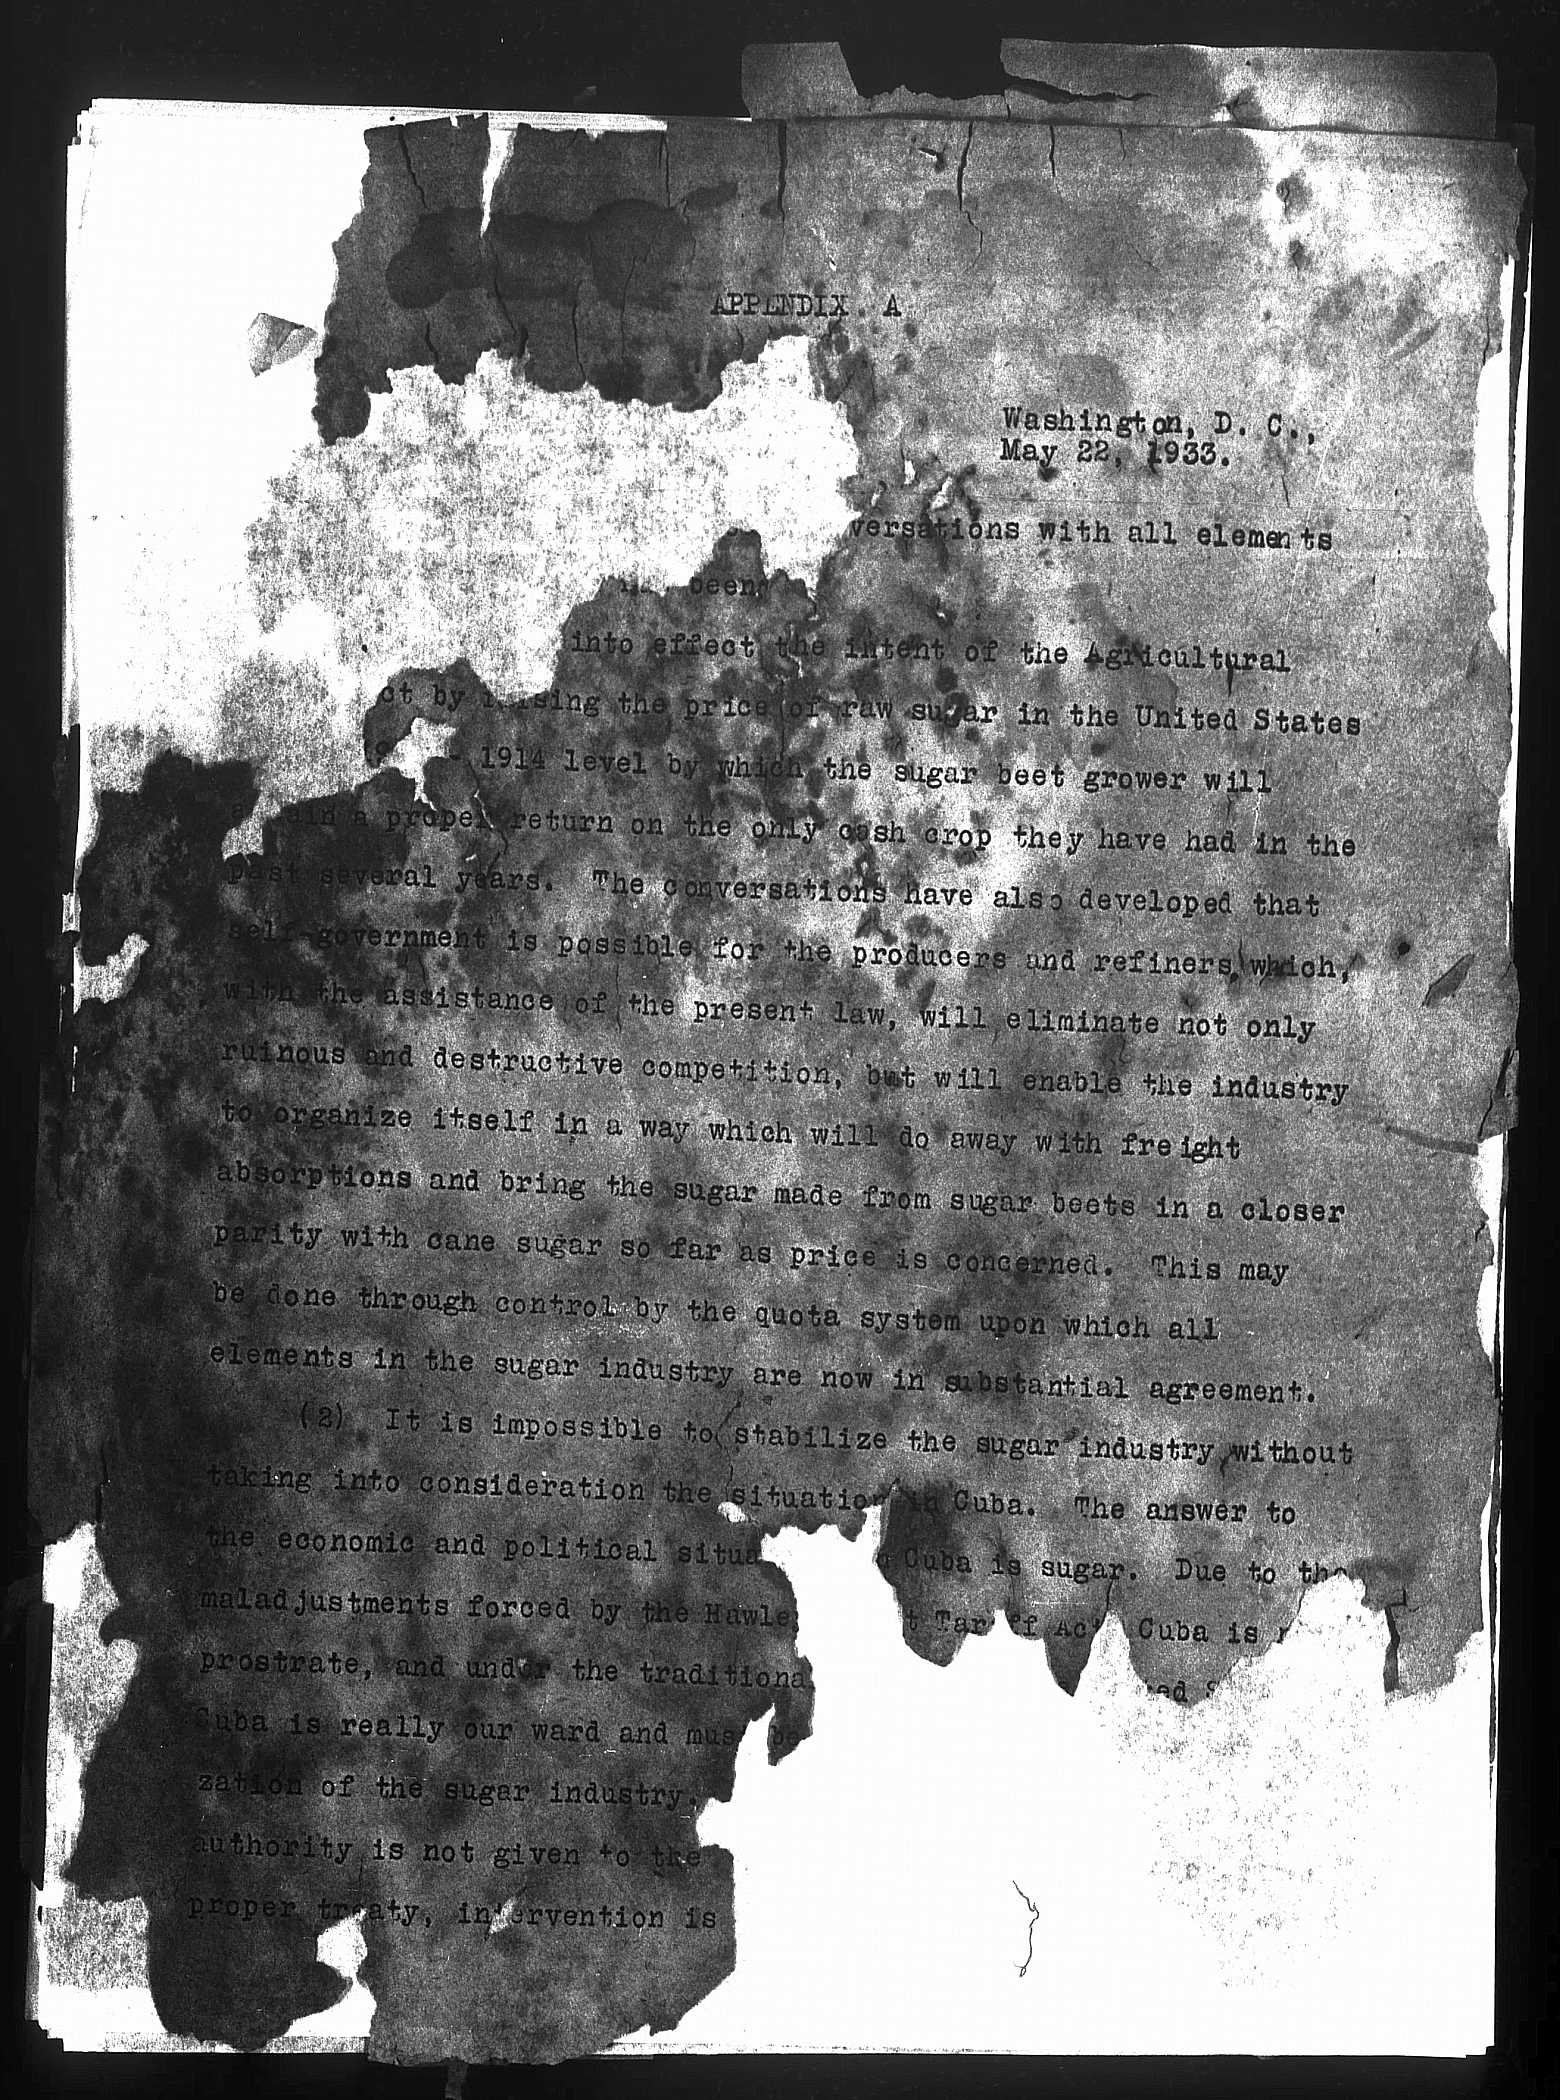 APPENDIX A
Washington, D. C.,
May 22, 1933.
versations with all elements
been
into effect the intent of the Agricultural
ct by raising the price of raw sugar in the United States
1914 level by which the sugar beet grower will
a proper return on the only cash crop they have had in the
past several years. The conversations have also developed that
self-government is possible for the producers and refiners, which,
with the assistance of the present law, will eliminate not only
ruinous and destructive competition, but will enable the industry
to organize itself in a way which will do away with freight
absorptions and bring the sugar made from sugar beets in a closer
parity with cane sugar so far as price is concerned. This may
be done through control by the quota system upon which all
elements in the sugar industry are now in substantial agreement.
(2) It is impossible to stabilize the sugar industry without
taking into consideration the situation in Cuba. The answer to
the economic and political situa Cuba is sugar. Due to the
maladjustments forced by the Hawle t Tariff Act Cuba is
prostrate, and under the traditiona
Cuba is really our ward and must be
zation of the sugar industry.
authority is not given to the
proper treaty, intervention is